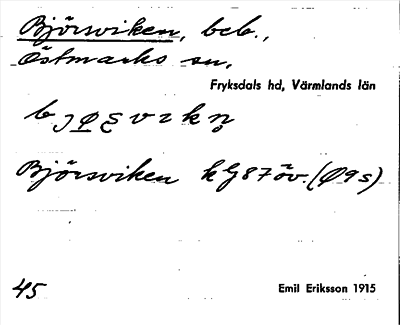 Björsviken, beb.,
Östmarks sn,
Fryksdals hd, Värmlands län
Björsviken kG87öv. (Ø9s)
45
Emil Eriksson 1915